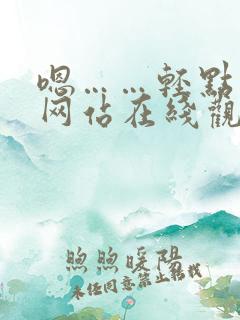 嗯……轻點
网佔在綫觀
煦煦暖陽
未经同意禁止转栽